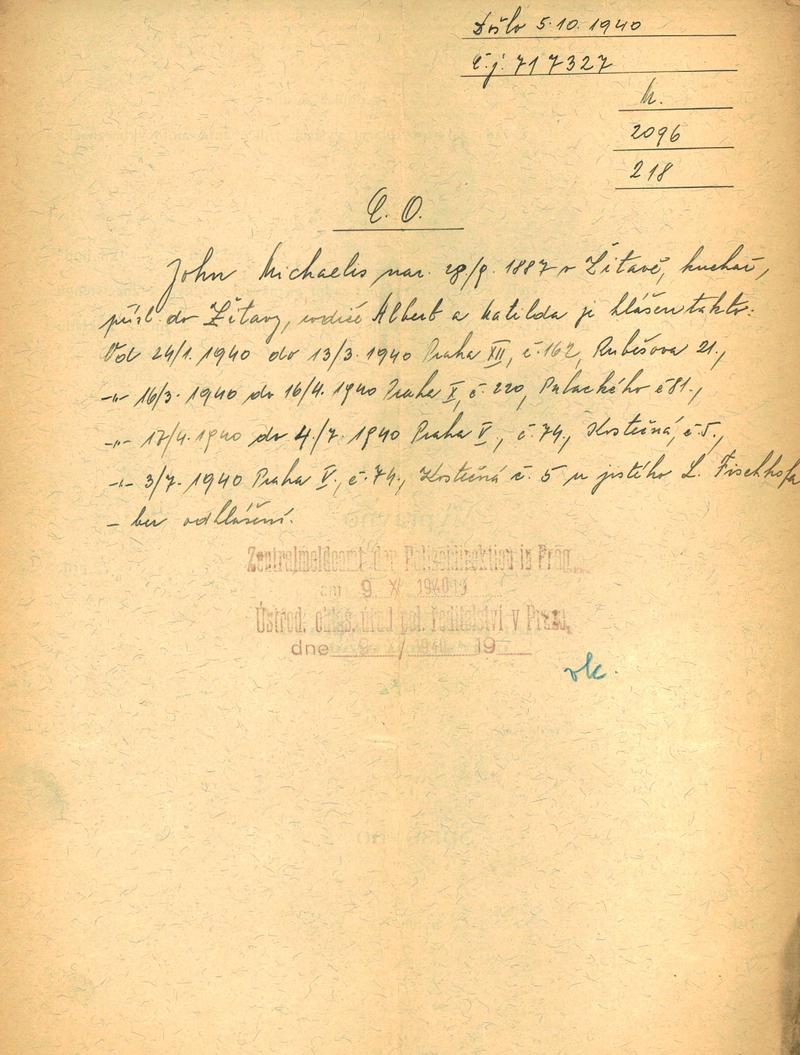 Došlo 5.10.1940
č.j. 717327
M.
2096
218
C. O.
John Michaelis nar. 28/9. 1887 v Žitavě, kuchař,
přísl. do Žitavy, rodiče Albert a Matilda je hlášen takto:
Od 24/1. 1940 do 13/3. 1940 Praha XII, č. 162, Rubešova 21.,
-"- 16/3. 1940 do 16/4. 1940 Praha X, č. 220, Palackého č 81.,
-"- 17/4. 1940 do 4./7. 1940 Praha V, č. 74., Kostečná, č. 5.,
-"- 3/7. 1940 Praha V., č. 74., Kostečná č. 5 u jistého L. Fischhofa
- bez odhlášení.
Zentralmeldeamt der Polizeidirektion in Prag
am 9. X 1940 19
Ústřed. ohlaš. úřad pol. ředitelství v Praze,
dne 9 / 1940 19